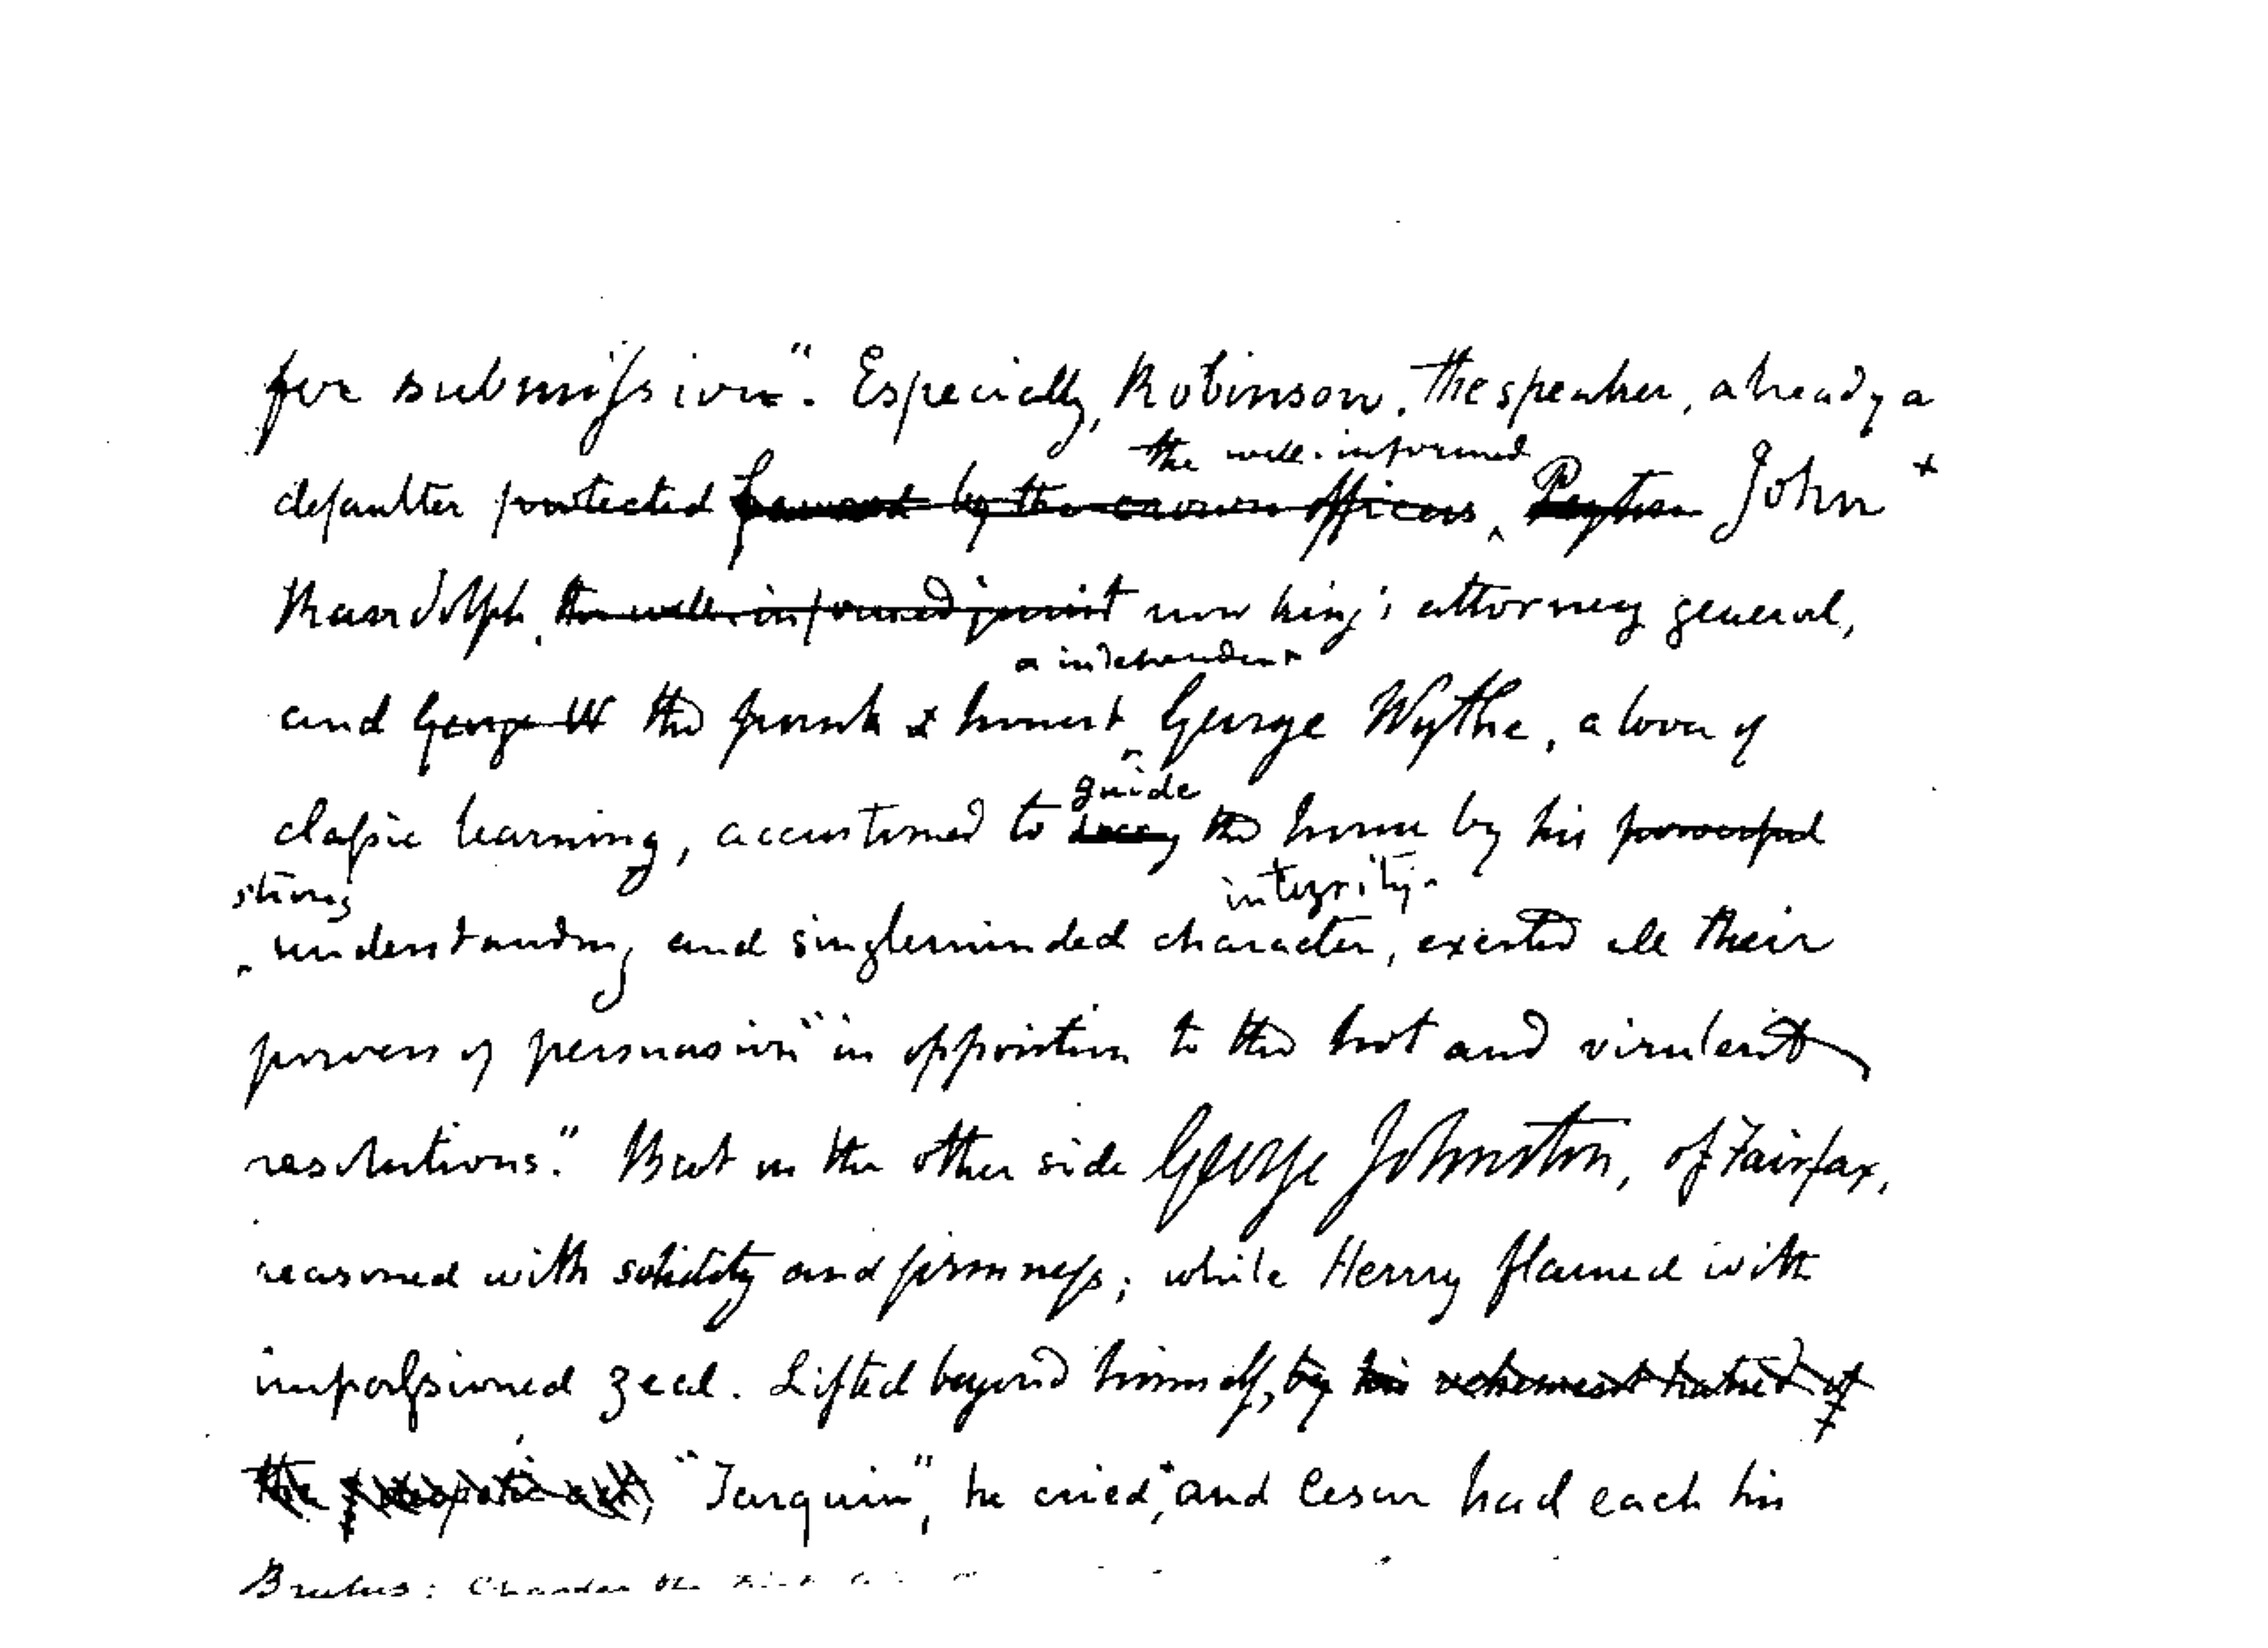 for submission". Especially, Robinson, the speaker, already a
the well-informed
defaulter protected by the crown officers, Peyton John +
Randolph, the well-informed jurist now king's attorney general,
a independent
and George W the frank & honest George Wythe, a lover of
guide
classic learning, accustomed to the house by his powerful
strong integrity
understanding and singleminded character, exerted all their
powers of persuasion" in opposition to the "hot and virulent
resolutions." But on the other side George Johnston, of Fairfax,
reasoned with solidity and firmness; while Henry flamed with
impassioned zeal. Lifted beyond himself, by his vehement hatred of
the act, "Tarquin", he cried, "and Cesar had each his
Brutus: Charles the First